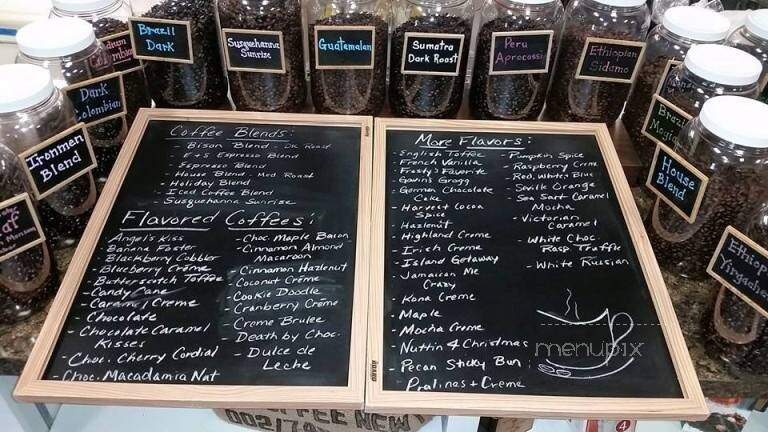 Brazil
Dark
Susquehanna
Sunrise
Guatemalan
Sumatra
Dark Roast
Peru
Aprocassi
Ethiopian
Sidamo
Dark
Colombian
Ironmen
Blend
Brazil
House
Blend
Ethiopian
Coffee Blends:
- Bison Blend - Dk Roast
- E+S Espresso Blend
- Espresso Blend
- House Blend - Med Roast
- Holiday Blend
- Iced Coffee Blend
- Susquehanna Sunrise
Flavored Coffees:
- Angel's Kiss
- Banana Foster
- Blackberry Cobbler
- Blueberry Crème
- Butterscotch Toffee
- Candy Cane
- Caramel Creme
- Chocolate
- Chocolate Caramel
Kisses
- Choc. Cherry Cordial
- Choc. Macadamia Nut
- Choc. Maple Bacon
- Cinnamon Almond
Macaroon
- Cinnamon Hazlenut
- Coconut Crème
- Cookie Doodle
- Cranberry Crème
- Creme Brulee
- Death by Choc.
- Dulce de
Leche
More Flavors:
- English Toffee
- French Vanilla
- Frosty's Favorite
- Gavin's Grogg
- German Chocolate
Cake
- Harvest Cocoa
Spice
- Hazlenut
- Highland Creme
- Irish Creme
- Island Getaway
- Jamaican Me
Crazy
- Kona Creme
- Maple
- Mocha Creme
- Nuttin 4 Christmas
- Pecan Sticky Bun
- Pralines + Creme
- Pumpkin Spice
- Raspberry Creme
- Red, White, Blue
- Seville Orange
- Sea Salt Caramel
Mocha
- Victorian
Caramel
- White Choc.
Rasp Truffle
- White Russian
menupix
4